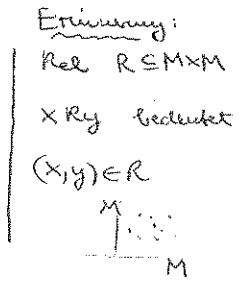 Erinnerung:
Rel R⊆M×M
xRy bedeutet
(x,y)∈R
M
M